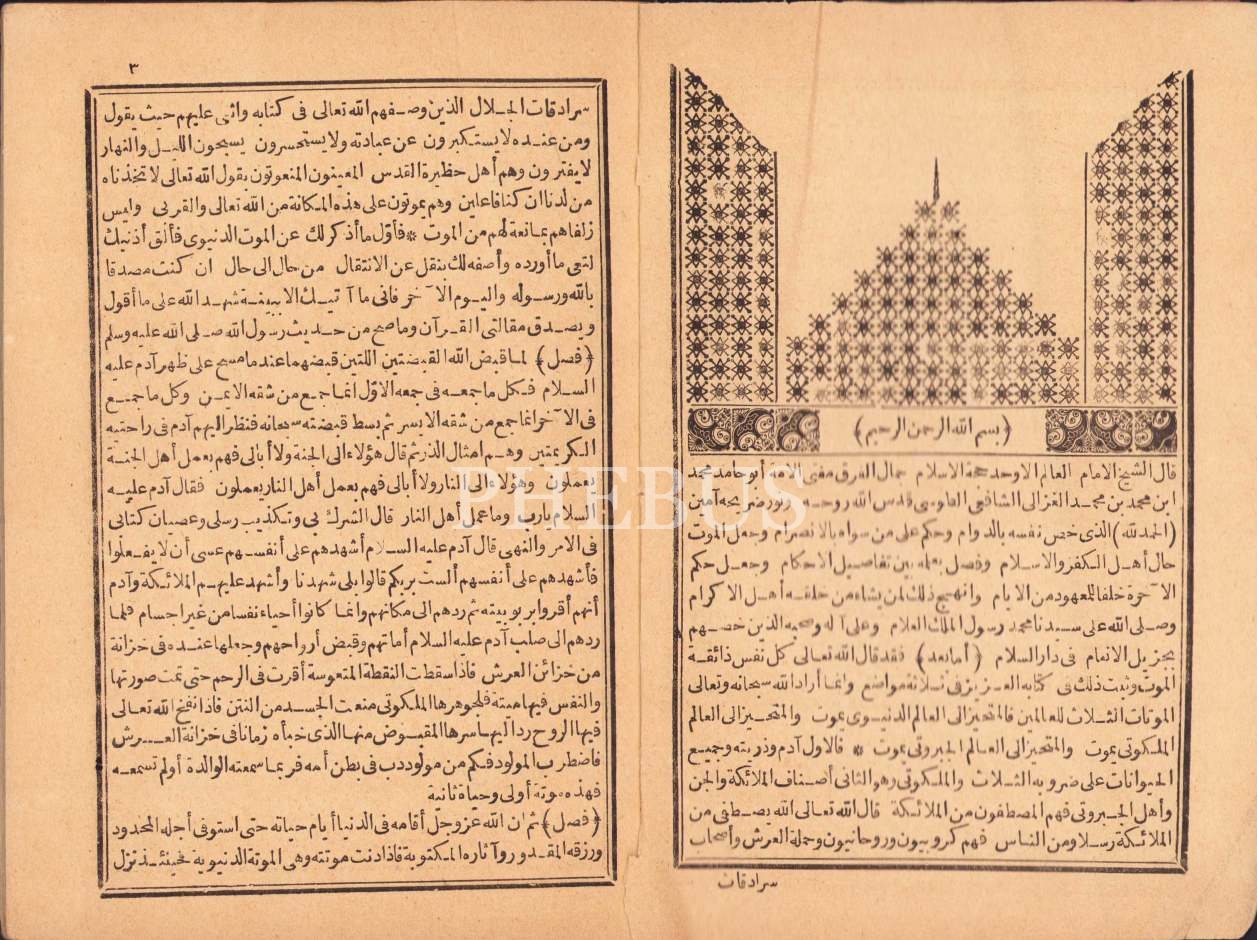 ﴿بسم الله الرحمن الرحيم﴾
قال الشيخ الامام العالم الاوحد حجة الاسلام جمال الفرق مفتى الامة أبو حامد محمد
ابن محمد بن محمد الغزالى الشافعى الطوسى قدس الله روحه ونور ضريحه آمين
(الحمد لله) الذى خص نفسه بالدوام وحكم على من سواه بالانصرام وجعل الموت
حال أهل الكفر والاسلام وفصل بعلمه بين تفاصيل الاحكام وجعل حكم
الآخرة خلفا للمعهود من الايام وانهج ذلك لمن يشاء من خلقه أهل الاكرام
وصلى الله على سيدنا محمد رسول الملك العلام وعلى آله وصحبه الذين خصهم
بجزيل الانعام فى دار السلام (أما بعد) فقد قال الله تعالى كل نفس ذائقة
الموت وثبت ذلك فى كتابه العزيز فى ثلاثة مواضع وانما أراد الله سبحانه وتعالى
الموتات الثلاث للعالمين فالمتحيز الى العالم الدنيوى يموت والمتحيز الى العالم
الملكوتى يموت والمتحيز الى العالم الجبروتى يموت * فالاول آدم وذريته وجميع
الحيوانات على ضروبه الثلاث والملكوتى وهو الثانى أصناف الملائكة والجن
وأهل الجبروتى فهم المصطفون من الملائكة قال الله تعالى الله يصطفى من
الملائكة رسلا ومن الناس فهم كروبيون وروحانيون وحملة العرش وأصحاب
سرادقات
٣
سرادقات الجلال الذين وصفهم الله تعالى فى كتابه واثنى عليهم حيث يقول
ومن عنده لا يستكبرون عن عبادته ولا يستحسرون يسبحون الليل والنهار
لا يفترون وهم أهل حظيرة القدس المعينون المنعوتون بقول الله تعالى لاتخذناه
من لدنا ان كنا فاعلين وهم يموتون على هذه المكانة من الله تعالى والقربى وليس
زلفاهم بمانعة لهم من الموت * فأول ما أذكر لك عن الموت الدنيوى فألق أذنيك
لتعى ما أورده وأصفه لك بنقل عن الانتقال من حال الى حال ان كنت مصدقا
بالله ورسوله واليوم الآخر فانى ما آتيك الا ببينة شهد الله على ما أقول
ويصدق مقالتى القرآن وما صح من حديث رسول الله صلى الله عليه وسلم
﴿فصل﴾ لما قبض الله القبضتين اللتين قبضهما عندما مسح على ظهر آدم عليه
السلام فكل ما جمعه فى جمعه الاول انما جمع من شقه الايمن وكل ما جمع
فى الآخر انما جمع من شقه الايسر ثم بسط قبضته سبحانه فنظر اليهم آدم فى راحتيه
الكريمتين وهم امثال الذر ثم قال هؤلاء الى الجنة ولا أبالى فهم بعمل أهل الجنة
يعملون وهؤلاء الى النار ولا أبالى فهم بعمل أهل النار يعملون فقال آدم عليه
السلام يارب وما عمل أهل النار قال الشرك بى وتكذيب رسلى وعصيان كتابى
فى الامر والنهى قال آدم عليه السلام أشهدهم على أنفسهم عسى أن لا يفعلوا
فأشهدهم على أنفسهم ألست بربكم قالوا بلى شهدنا وأشهد عليهم الملائكة وآدم
أنهم أقروا بربوبيته ثم ردهم الى مكانهم وانما كانوا أحياء نفسا من غير اجسام فلما
ردهم الى صلب آدم عليه السلام أماتهم وقبض أرواحهم وجعلها عنده فى خزانة
من خزائن العرش فاذا سقطت النقطة المتعوسة أقرت فى الرحم حتى تمت صورتها
والنفس فيها ميتة فلجوهرها الملكوتى منعت الجسد من النتن فاذا نفخ الله تعالى
فيها الروح رد اليها سرها المقبوض منها الذى خبأه زمانا فى خزانة العرش
فاضطرب المولود فكم من مولود دب فى بطن أمه فربما سمعته الوالدة أو لم تسمعه
فهذه موتة أولى وحياة ثانية
﴿فصل﴾ ثم ان الله عز وجل أقامه فى الدنيا أيام حياته حتى استوفى أجله المحدود
ورزقه المقدور وآثاره المكتوبة فاذا دنت موتته وهى الموتة الدنيوية فحينئذ نزل
PHEBUS